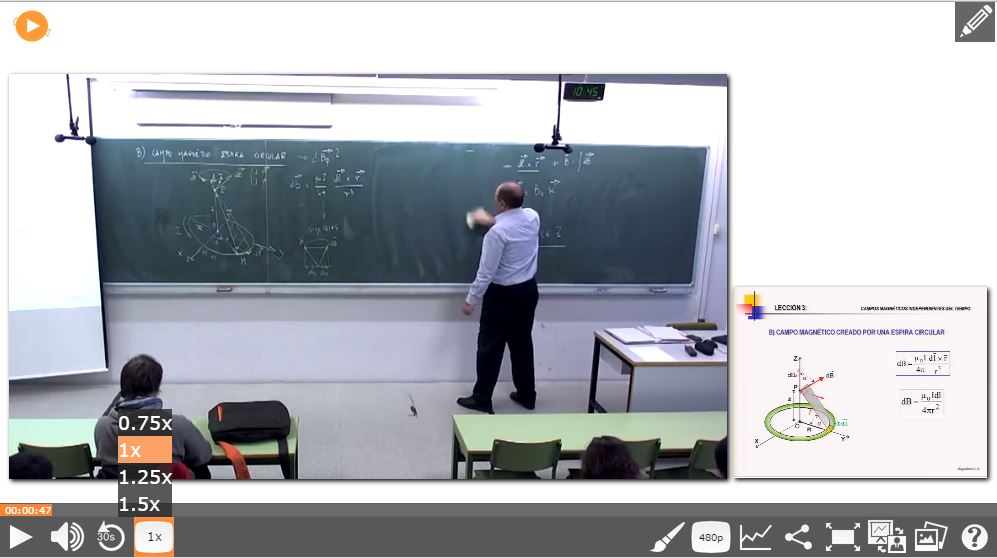 10:45
B) CAMPO MAGNÉTICO ESPIRA CIRCULAR → dB⃗p ?
dB⃗ = μ₀I/4π dl⃗ × r⃗/r³
SIMETRÍAS
→ dl⃗ × r⃗ → B⃗ = ∫dB⃗
LECCIÓN 3:
CAMPOS MAGNÉTICOS INDEPENDIENTES DEL TIEMPO
B) CAMPO MAGNÉTICO CREADO POR UNA ESPIRA CIRCULAR
dB⃗ = μ₀I/4π dl⃗ × r⃗/r³
dB = μ₀Idl/4πr²
Z
dB⃗
P
z
O
R
X
Y
0.75x
1x
1.25x
1.5x
00:00:47
30s
1x
480p
?